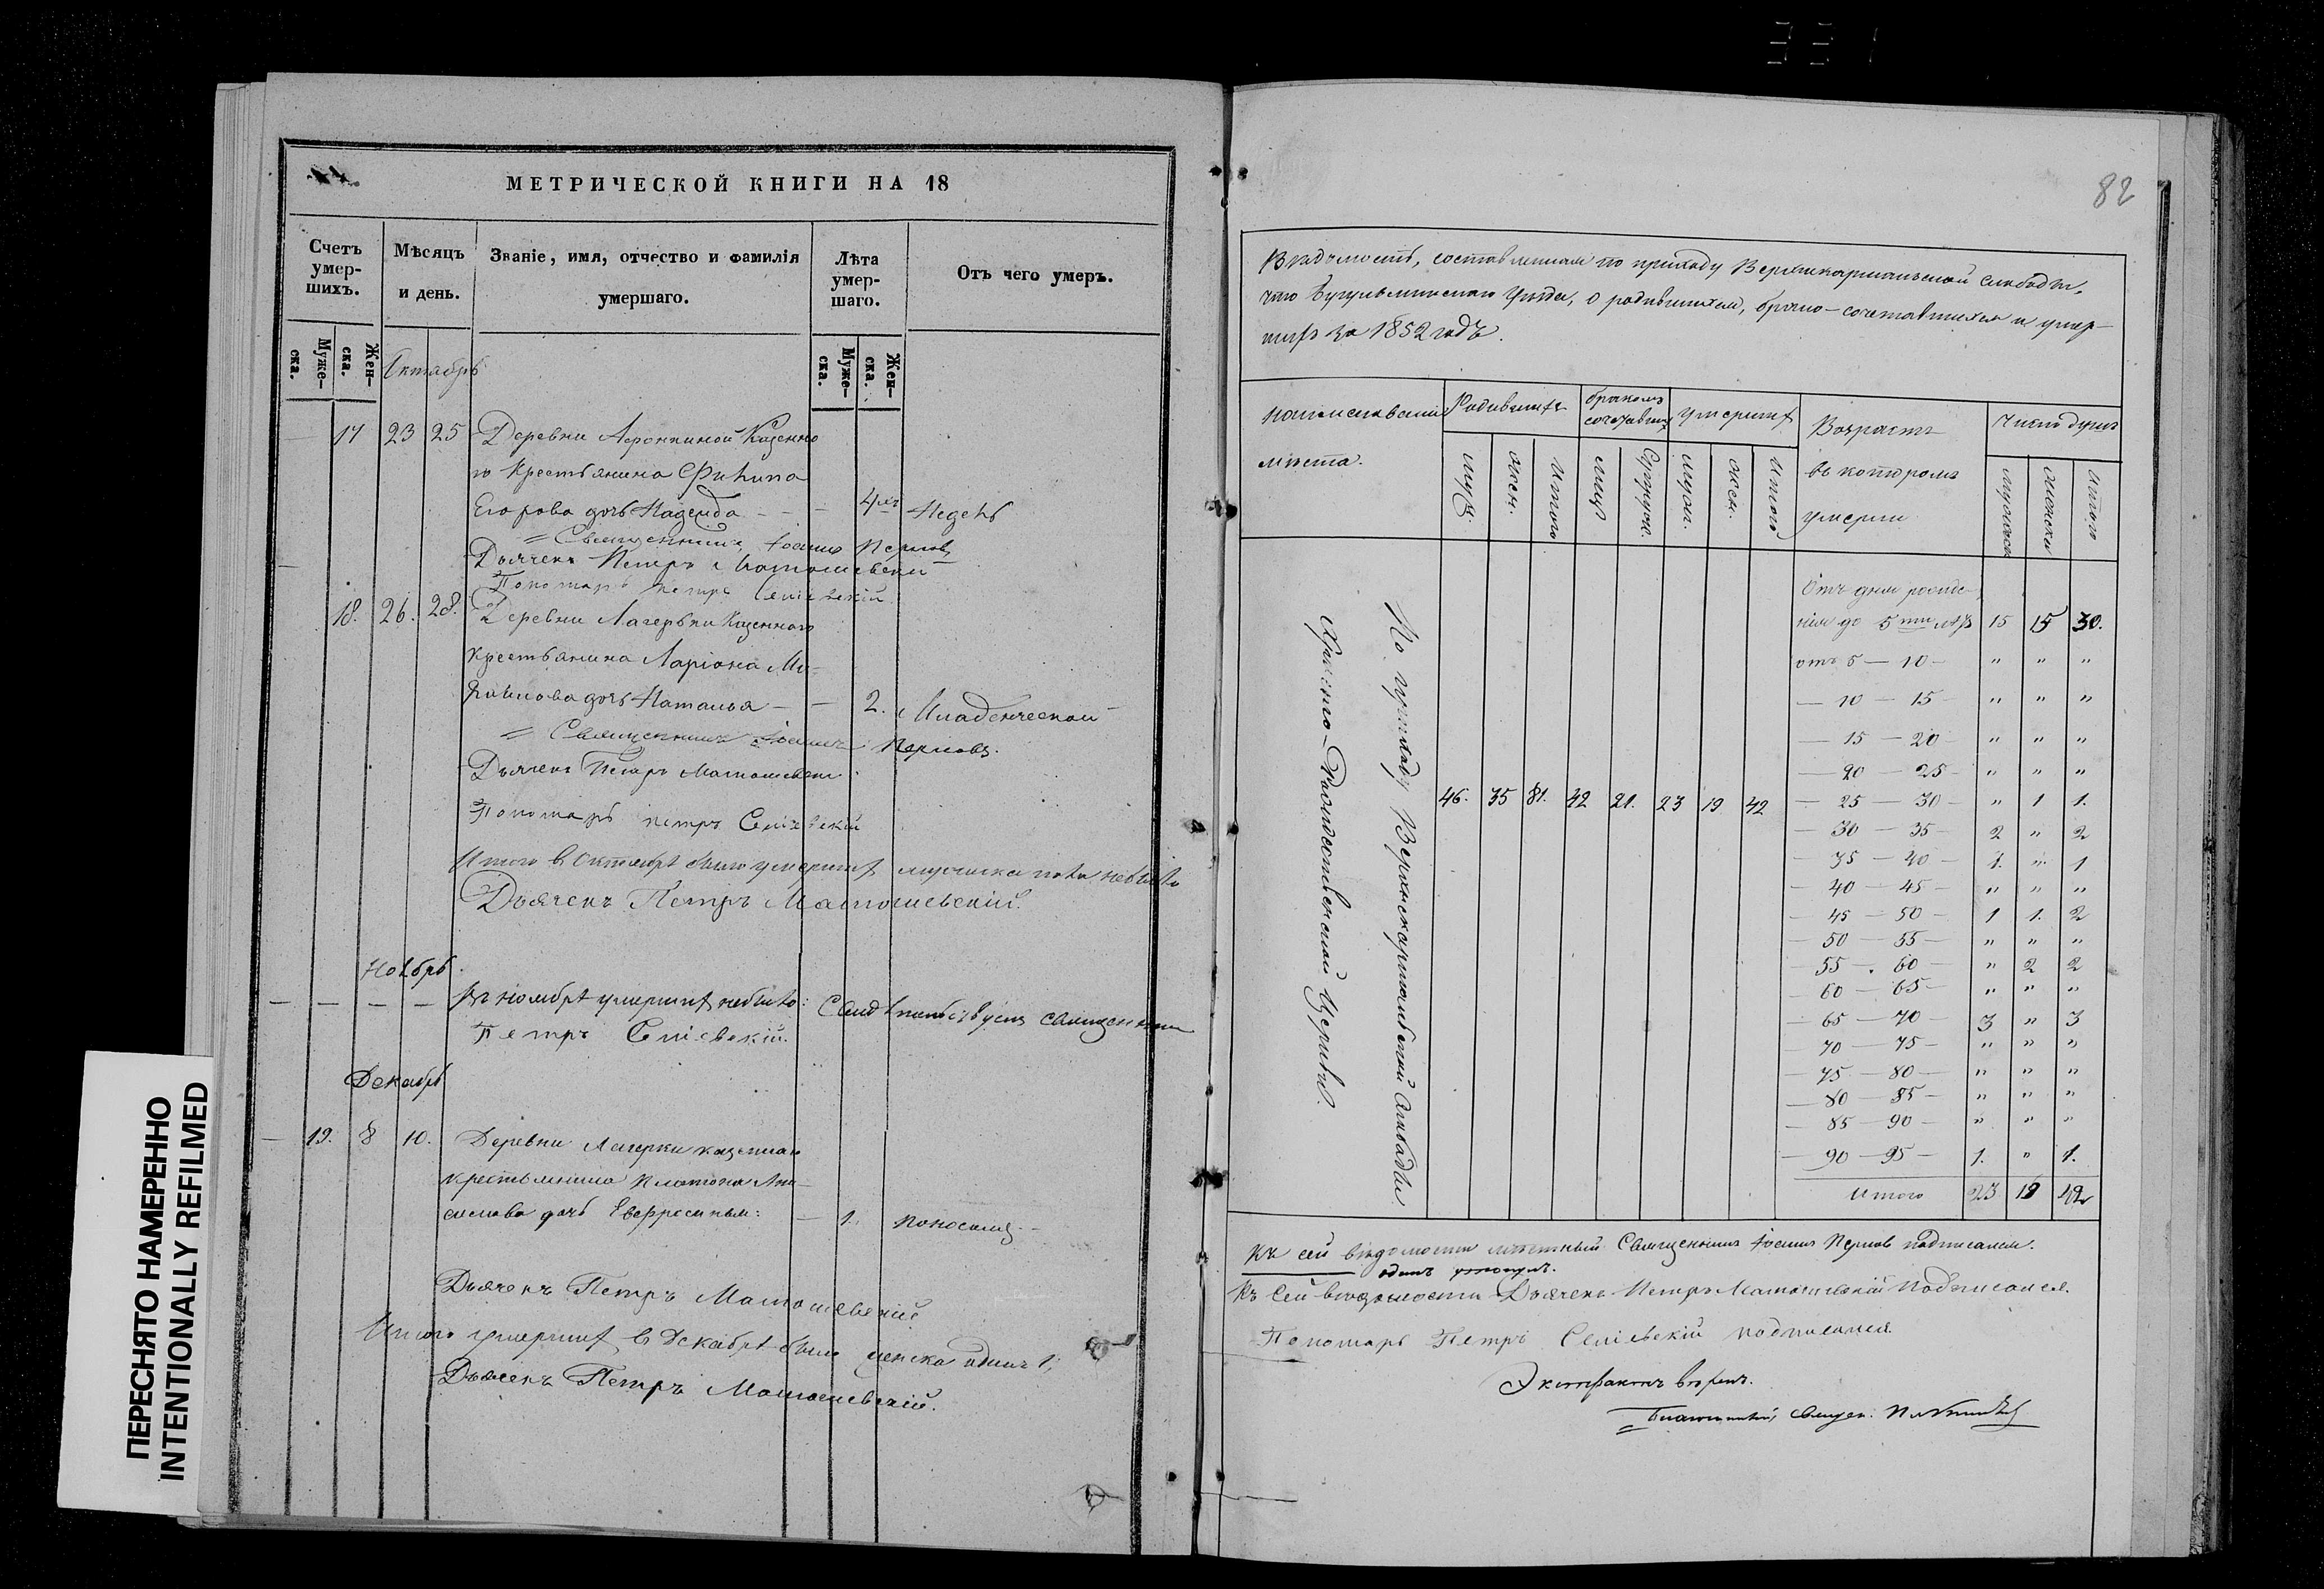 МЕТРИЧЕСКОЙ КНИГИ НА 18
Счетъ умер-шихъ.
Мѣсяцъ и день.
Званіе, имя, отчество и фамилія умершаго.
Лѣта умер-шаго.
Отъ чего умеръ.
Муже-ска.
Жен-ска.
Муже-ска.
Жен-ска.
Октябрь
17 23 25 Деревни Казенна
го Крестьянина Филипа
Егорова дочь Надежда - - - 4хъ
Священникъ Іоаннъ
Дьячекъ Петръ Матюшевскій
Пономарь Петръ
18. 26. 28. Деревни Казеннаго
Крестьянина Ларіона Ми-
хайлова дочь Наталья - - 2. Младенческой
Священникъ Іоаннъ
Дьячекъ Петръ Матюшевскій
Пономарь Петръ
Итого в Октябрѣ было умершихъ мужска пола небыло
Дьячекъ Петръ Матюшевскій.
Ноябрь.
— — — — Въ ноябрѣ умершихъ небыло: Свидѣтельствуетъ священникъ
Петръ
Декабрь
— 19. 8 10. Деревни казеннаго
крестьянина Платона
дочь Евфросинья: — 1. поносомъ
Дьячекъ Петръ Матюшевскій
Итого умершихъ в Декабрѣ было женска одинъ 1;
Дьячекъ Петръ Матюшевскій.
ПЕРЕСНЯТО НАМЕРЕННО
INTENTIONALLY REFILMED
82
Вѣдомость, составленная по приходу Верхнекармальской слободы,
что Бугульминскаго Уѣзда, о родившихся, брако-сочетавшихся и умер-
шихъ за 1852 годъ.
Наименованіе мѣста.
Родившихся
бракомъ сочетавших
Умершихъ
Возрастъ въ которомъ умерли
Число душъ
муж. жен. Итого
лицъ Супруж.
муж. жен. Итого
мужска женска Итого
По приходу Верхнекармальской слободы
Христо-Рождественской Церкви.
46. 35 81. 42 21. 23 19 42
Отъ дня рожде-
нія до 5ти лѣтъ 15 15 30.
отъ 5 — 10 — " " "
— 10 — 15 — " " "
— 15 — 20 — " " "
— 20 — 25 — " " "
— 25 — 30 — " 1 1.
— 30 — 35 — 2 " 2
— 35 — 40 — 1. " 1
— 40 — 45 — " " "
— 45 — 50 — 1 1. 2
— 50 — 55 — " " "
— 55 — 60 — " 2 2
— 60 — 65 — " " "
— 65 — 70 — 3 " 3
— 70 — 75 — " " "
— 75 — 80 — " " "
— 80 — 85 — " " "
— 85 — 90 — " " "
— 90 — 95 — 1. " 1.
Итого 23 19 42
Къ сей вѣдомости мѣстный Священникъ Іоаннъ подписался.
одинъ
Къ сей вѣдомости Дьячекъ Петръ Матюшевскій подписался.
Пономарь Петръ подписался.
Экстрактъ вѣренъ.
Благочинный, Священ.